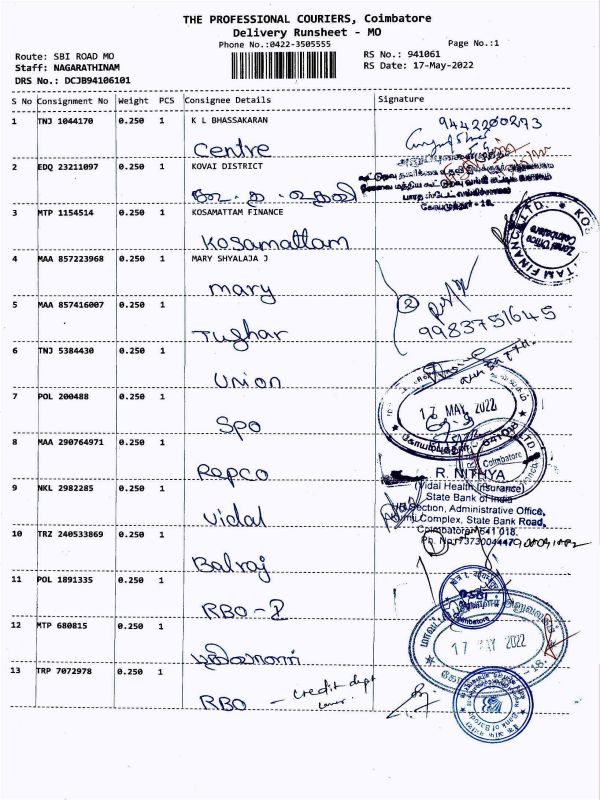 THE PROFESSIONAL COURIERS, Coimbatore
Delivery Runsheet - MO
Phone No.:0422-3505555
Page No.:1
Route: SBI ROAD MO
RS No.: 941061
Staff: NAGARATHINAM
RS Date: 17-May-2022
DRS No.: DCJB94106101
S No Consignment No Weight PCS Consignee Details Signature
1 TNJ 1044170 0.250 1 K L BHASSAKARAN
Centre
9442200273
2 EDQ 23211097 0.250 1 KOVAI DISTRICT
3 MTP 1154514 0.250 1 KOSAMATTAM FINANCE
Kosamattam
4 MAA 857223968 0.250 1 MARY SHYALAJA J
mary
5 MAA 857416007 0.250 1
Tushar
2
9983751645
6 TNJ 5384430 0.250 1
Union
7 POL 200488 0.250 1
SPO
17 MAY 2022
8 MAA 290764971 0.250 1
Repco
Coimbatore
641018
9 NKL 2982285 0.250 1
Vidal
R. NITHYA
(Vidal Health Insurance)
State Bank of India
Section, Administrative Office,
Complex, State Bank Road,
Coimbatore 641 018.
10 TRZ 240533869 0.250 1
Balraj
11 POL 1891335 0.250 1
RBO - 2
SBI
Coimbatore
12 MTP 680815 0.250 1
17 MAY 2022
13 TRP 7072978 0.250 1
RBO - credit dept
Bank of Baroda